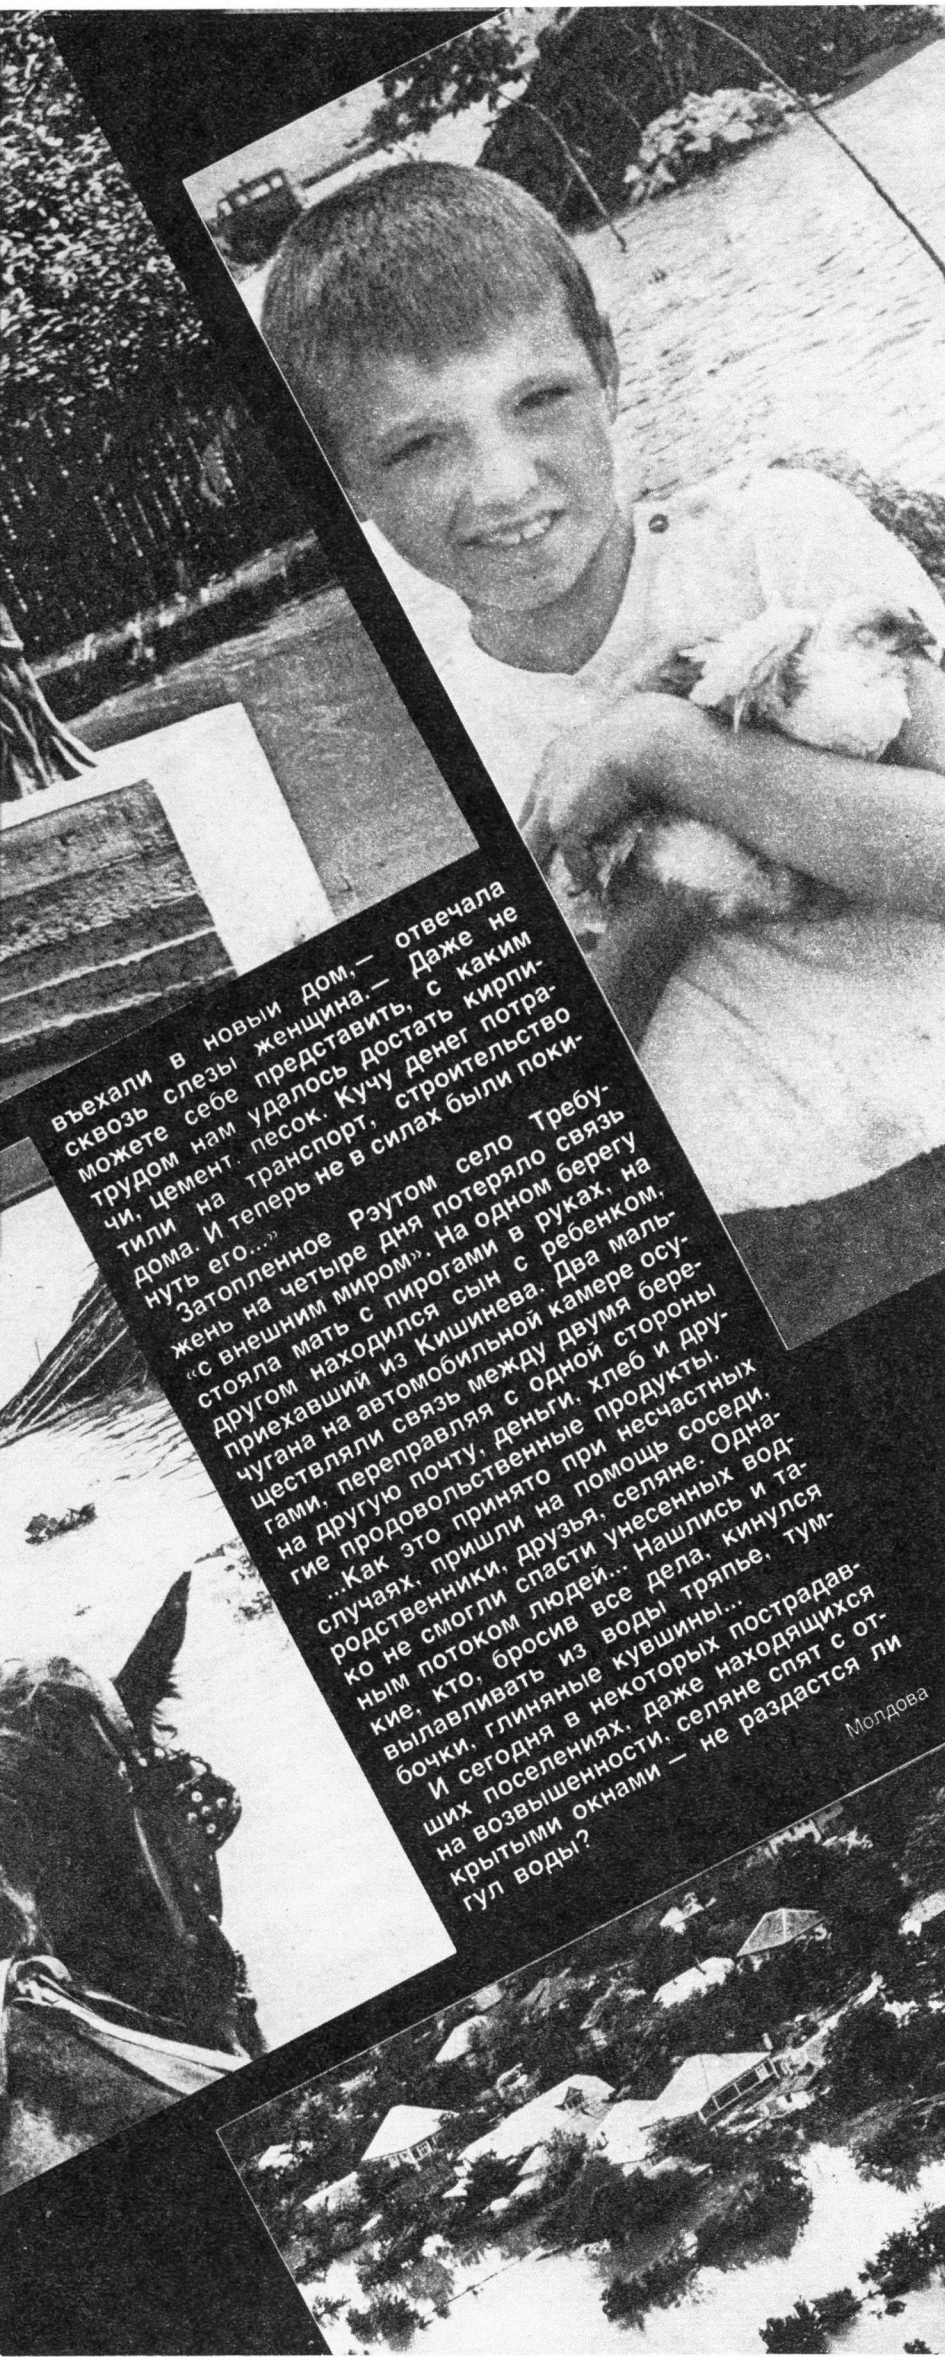 въехали в новый дом,— отвечала
сквозь слезы женщина.— Даже не
можете себе представить, с каким
трудом нам удалось достать кирпи-
чи, цемент, песок. Кучу денег потра-
тили на транспорт, строительство
дома. И теперь не в силах были поки-
нуть его...»
Затопленное Рэутом село Требу-
жень на четыре дня потеряло связь
«с внешним миром». На одном берегу
стояла мать с пирогами в руках, на
другом находился сын с ребенком,
приехавший из Кишинева. Два маль-
чугана на автомобильной камере осу-
ществляли связь между двумя бере-
гами, переправляя с одной стороны
на другую почту, деньги, хлеб и дру-
гие продовольственные продукты.
...Как это принято при несчастных
случаях, пришли на помощь соседи,
родственники, друзья, селяне. Одна-
ко не смогли спасти унесенных вод-
ным потоком людей... Нашлись и та-
кие, кто, бросив все дела, кинулся
вылавливать из воды тряпье, тум-
бочки, глиняные кувшины...
И сегодня в некоторых пострадав-
ших поселениях, даже находящихся
на возвышенности, селяне спят с от-
крытыми окнами — не раздастся ли
гул воды?
Молдова